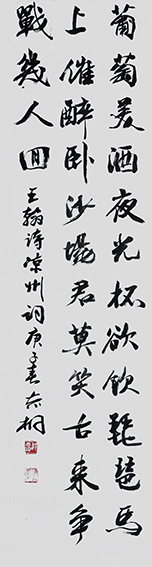 葡萄美酒夜光杯欲飲琵琶馬
上催醉卧沙場君莫笑古來爭
戰幾人回
王翰詩涼州詞庚子春